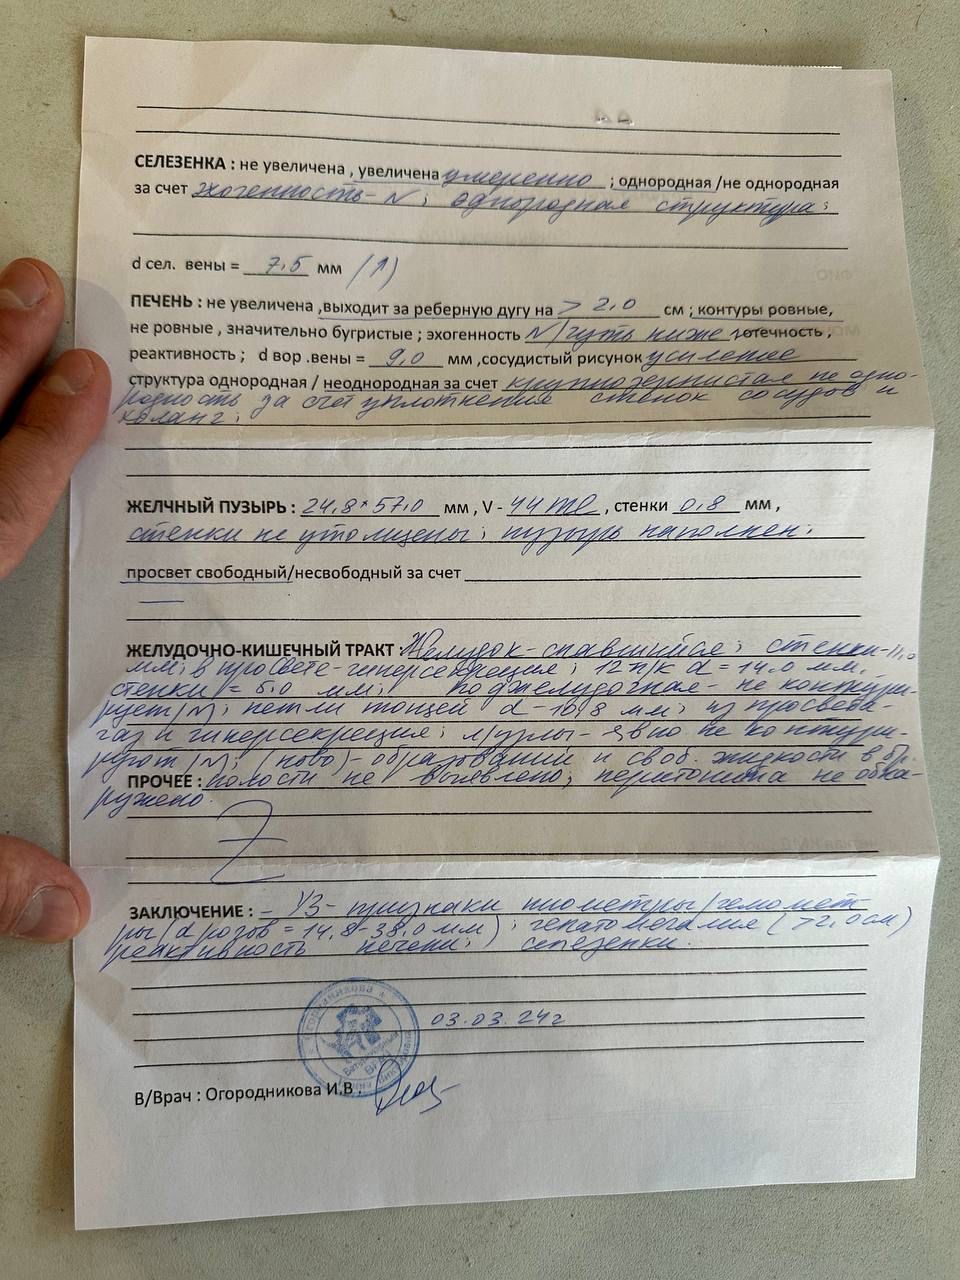 СЕЛЕЗЕНКА : не увеличена , увеличена умеренно ; однородная /не однородная
за счет эхогенность - N ; однородная структура ;
d сел. вены = 7,5 мм (↑)
ПЕЧЕНЬ : не увеличена ,выходит за реберную дугу на > 2,0 см ; контуры ровные,
не ровные , значительно бугристые ; эхогенность N/чуть ниже /отечность ,
реактивность ; d вор .вены = 9,0 мм ,сосудистый рисунок усиление
структура однородная / неоднородная за счет крупнозернистая не одно-
родность за счет уплотнения стенок сосудов и
холанг ;
ЖЕЛЧНЫЙ ПУЗЫРЬ : 24,8*57,0 мм , V - 44 ml , стенки 0,8 мм ,
стенки не утолщены ; пузырь наполнен ;
просвет свободный/несвободный за счет
—
ЖЕЛУДОЧНО-КИШЕЧНЫЙ ТРАКТ : Желудок - спавшийся ; стенки -
мм ; в просвете - гиперсекреция ; 12 п/к d = 14,0 мм,
стенки = 5,0 мм ; поджелудочная - не контури-
рует /N/ ; петли тощей d - 10,8 мм ; из просвета -
газ и гиперсекреция ; л/узлы - явно не контури-
руют /N/ ; (ново) - образований и своб. жидкости в бр.
ПРОЧЕЕ : полости не выявлено ; перитонита не обна-
ружено.
ЗАКЛЮЧЕНИЕ : - УЗ - признаки пиометры/гемомет-
ры /d рогов = 14,8 - 38,0 мм/ ; гепатомегалия ( >2,0 см)
реактивность печени ; селезенки.
03.03.24г
В/Врач : Огородникова И.В .